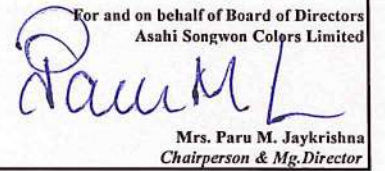 For and on behalf of Board of Directors
Asahi Songwon Colors Limited
Paru M
Mrs. Paru M. Jaykrishna
Chairperson & Mg.Director